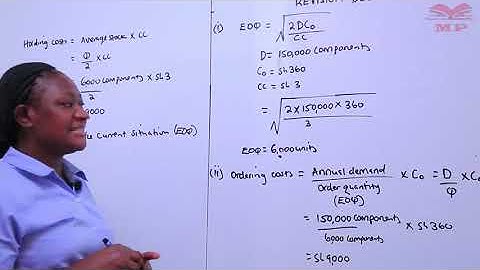 Holding costs = Average stock × CC
= Q/2 × CC
6000 components/2 × sh 3
9000
Current Situation (EOQ)
REVISION
(i) EOQ = √(2DCo/CC)
D = 150,000 components
Co = sh 360
CC = sh 3
= √(2 × 150,000 × 360/3)
EOQ = 6,000 units
(ii) Ordering costs = Annual demand/Order quantity (EOQ) × Co = D/Q × Co
= 150,000 components/6000 components × sh 360
= sh 9,000
MP